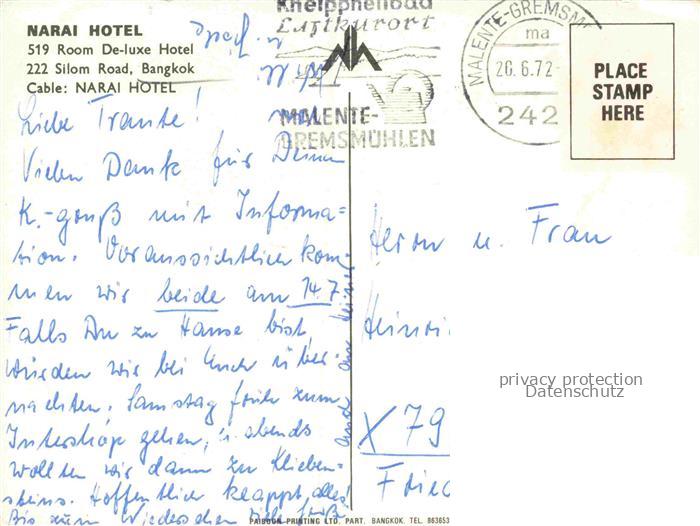 NARAI HOTEL
519 Room De-luxe Hotel
222 Silom Road, Bangkok
Cable: NARAI HOTEL
Kneippheilbad
Luftkurort
MALENTE-
GREMSMÜHLEN
MALENTE-GREMSM
ma
26.6.72-
242
PLACE
STAMP
HERE
Liebe Traute!
Vielen Dank für Deinen
K.-gruß mit Informa=
tion. Voraussichtlich kom
men wir beide am 14.7.
Falls Du zu Hause bist
würden wir bei Euch über=
nachten. Samstag früh zum
Intershop gehen, u. abends
wollten wir dann zu Klieben=
steins. Hoffentlich klappt alles!
Bis zum Wiedersehen
Herrn u. Frau
Heinri
X 79
Fried
privacy protection
Datenschutz
PAIBOON PRINTING LTD. PART. BANGKOK. TEL. 863653